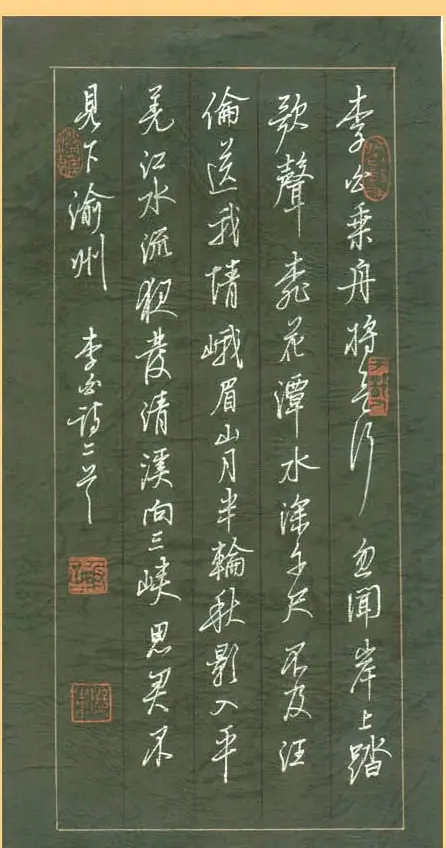 李白乘舟将欲行 忽闻岸上踏
歌聲 桃花潭水深千尺 不及汪
倫送我情 峨眉山月半輪秋 影入平
羌江水流 夜發清溪向三峽 思君不
見下渝州 李白诗二首